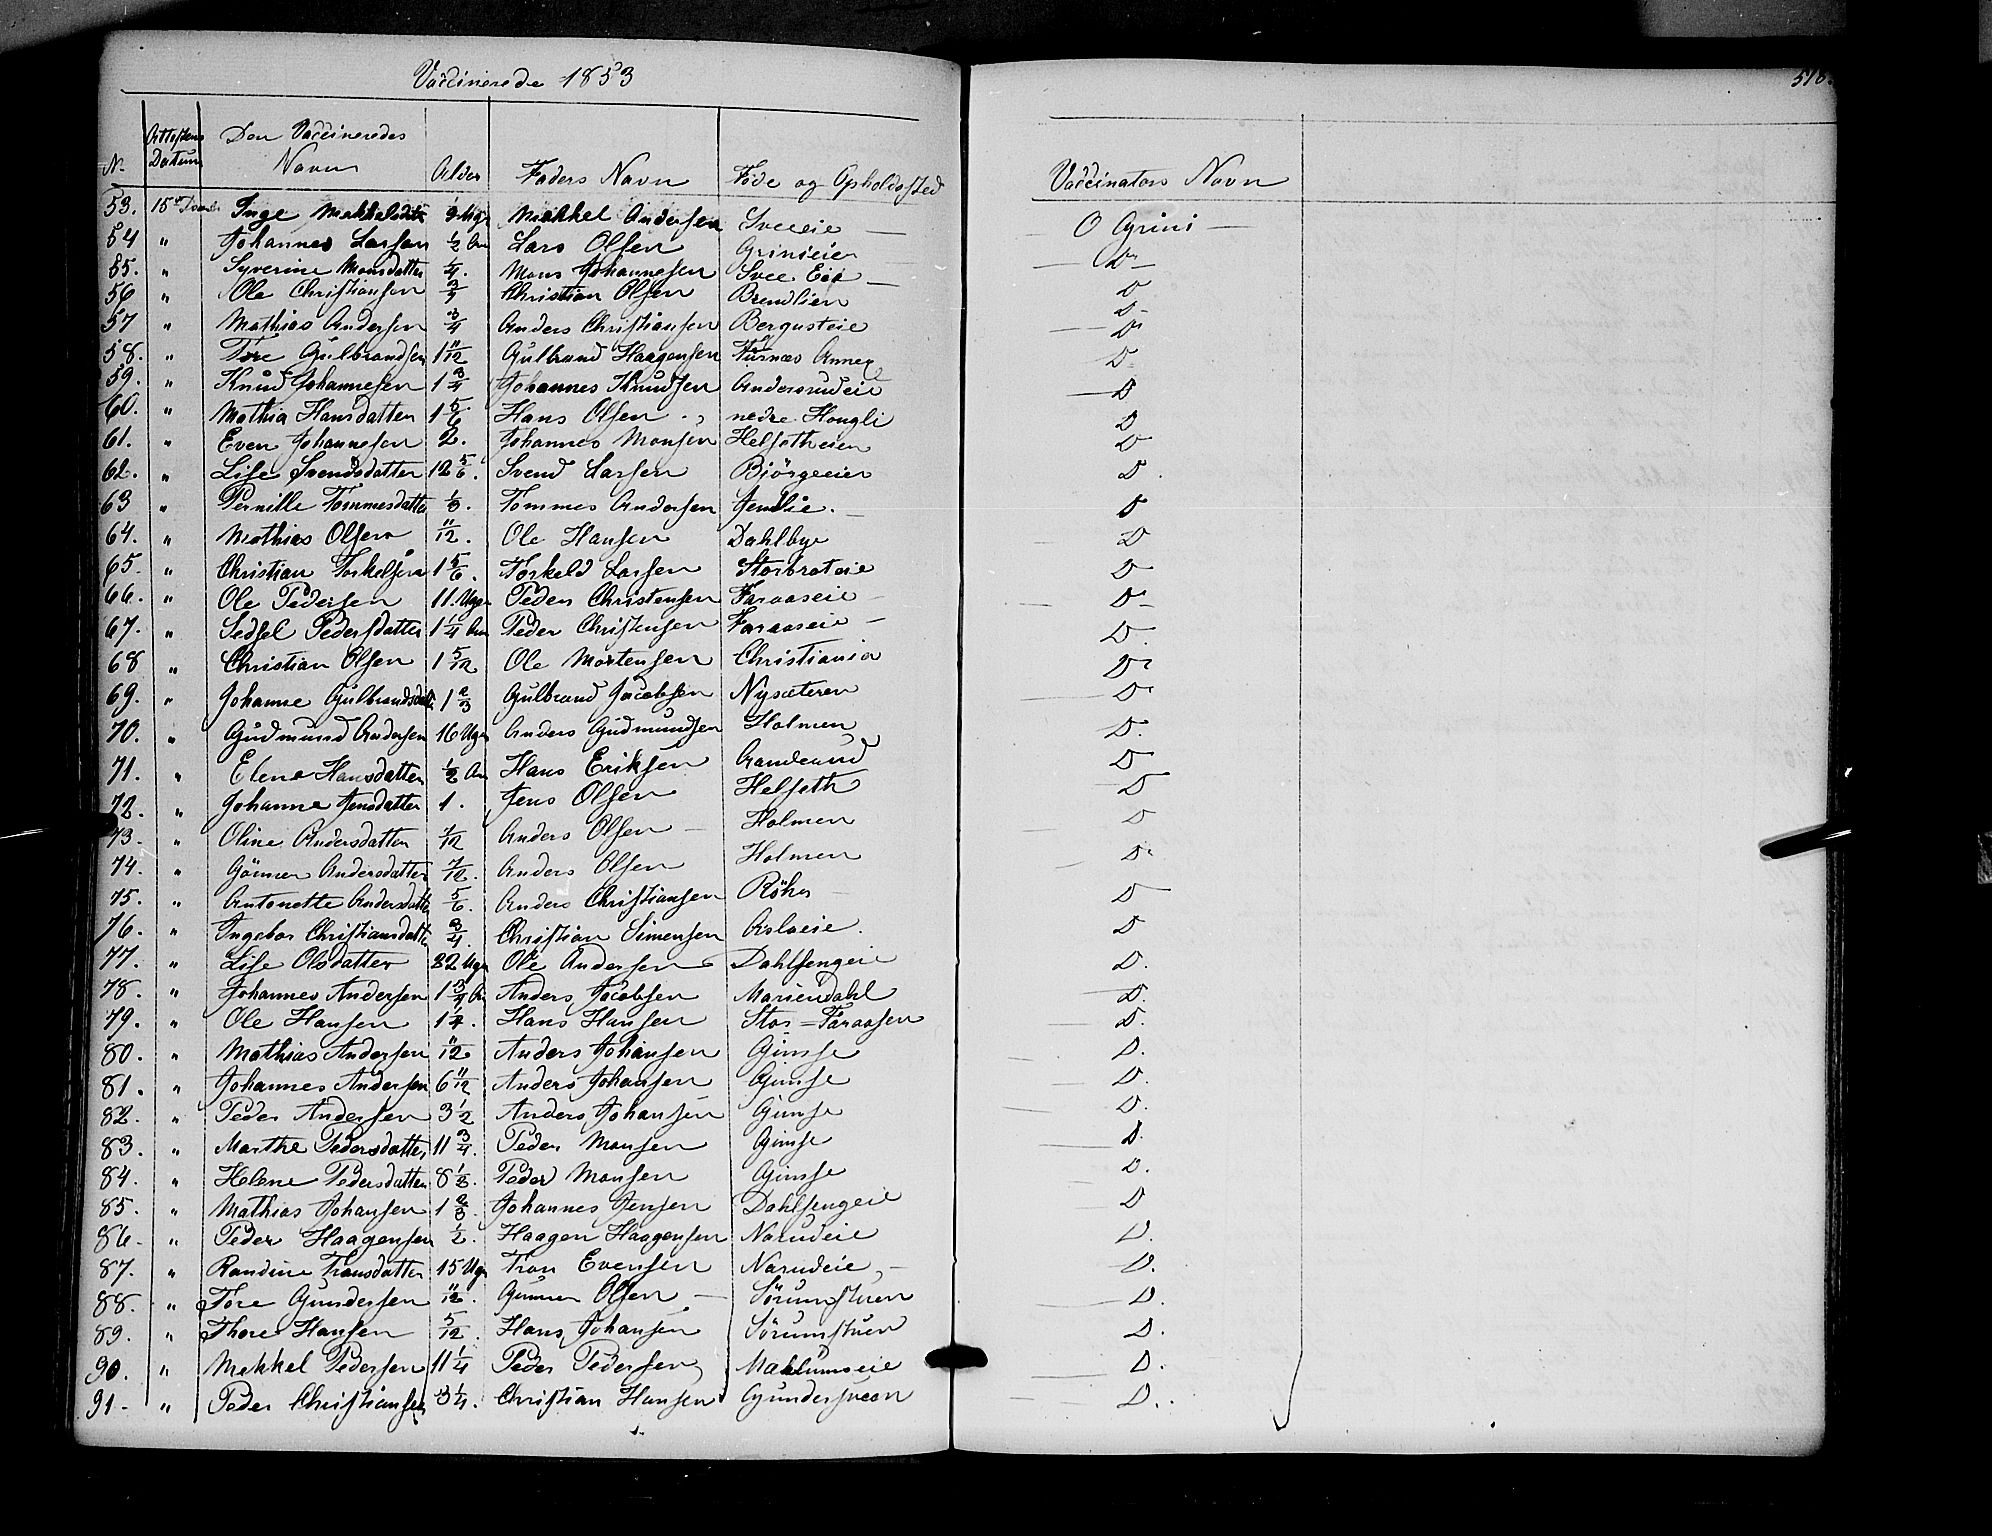 Vaccinerede 1853
518.
N. Attestens Datum Den Vaccineredes Navn Alder Faders Navn Føde og Opholdssted Vaccinators Navn
53. 15de Inge Mekkelsdtr 9 Ugr Mekkel Andersen Sveeeie — O Grini —
54 " Johannes Larsen ½ Lars Olsen Grinieier — D —
55. " Syverine Monsdatter ¼. Mons Johannesen Svee Eie — D
56 " Ole Christiansen ¾ Christian Olsen Brendlien D -
57 " Mathias Andersen ¾ Anders Christiansen Bergusteie — D
58. " Tore Gulbrandsen 1 11/12 Gulbrand Haagensen Furnæs Annex D
59. " Knud Johannesen 1 ¾ Johannes Knudsen Andersrudeie — D
60. " Mathia Hansdatter 1 5/6 Hans Olsen nedre Hougli D
61. " Even Johannesen 2. Johannes Monsen Helsetheien D
62. " Lise Svendsdatter 12 5/6. Svend Larsen Bjørgeeier D.
63 " Pernille Tommesdatter ⅓. Tommes Andersen Jemlie. — D
64. " Mathias Olsen 11/12. Ole Hansen Dahlbye D
65. " Christian Torkelsen 1 5/6. Torkeld Larsen Storbrateie D
66. " Ole Pedersen 11. Uger Peder Christensen Faraaseie — D —
67. " Sedsel Pedersdatter 1 ¼ Peder Christensen Faraaseie — D.
68 " Christian Olsen 1 5/12 Ole Mortensen Christiania D
69. " Johanne Gulbrandsdatter 1 ⅔ Gulbrand Jacobsen Nysæteren — D
70. " Gudmund Andersen 16 Uger Anders Gudmundsen Holmen D.
71. " Elene Hansdatter ½ Hans Eriksen D
72. " Johanne Jensdatter 1. Jens Olsen Helseth D
73. " Oline Andersdatter 7/12 Anders Olsen — Holmen D
74. " Andersdatter 7/12. Anders Olsen Holmen D
75. " Antonette Andersdatter 5/6. Anders Christiansen D
76. " Ingebor Christiansdatter ¾. Christian Simensen Aslaeie. D
77. " Lise Olsdatter 32 Uger Ole Andersen Dahlsengeie D.
78. " Johannes Andersen 1 ¾ Anders Jacobsen Mariendahl — D.
79. " Ole Hansen 1 ¼. Hans Hansen Stor = Faraasen — D.
80. " Mathias Andersen 11/12. Anders Johansen Gimse D.
81. " Johannes Andersen 6 11/12 Anders Johansen Gimse D.
82. " Peder Andersen 3 ½ Anders Johansen Gimse D.
83. " Marthe Pedersdatter 11 ¾. Peder Monsen Gimse — D.
84. " Helene Pedersdatter 8 ⅓. Peder Monsen Gimse D.
85. " Mathias Johansen 1 ⅔. Johannes Jensen Dahlsengeie D
86. " Peder Haagensen ½. Haagen Haagensen Narudeie D.
87. " Randine Tronsdatter 15 Uger Tron Evensen Narudeie, — D.
88. " Tore Gundersen 11/12. Gunner Olsen — Sørumstuen — D.
89. " Thore Hansen 5/12. Hans Johansen Sørumstuen D.
90. " Mekkel Pedersen 11 ¼ Peder Pedersen Mælumseie D.
91. " Peder Christiansen 3 ¼. Christian Hansen Gundersveen D..